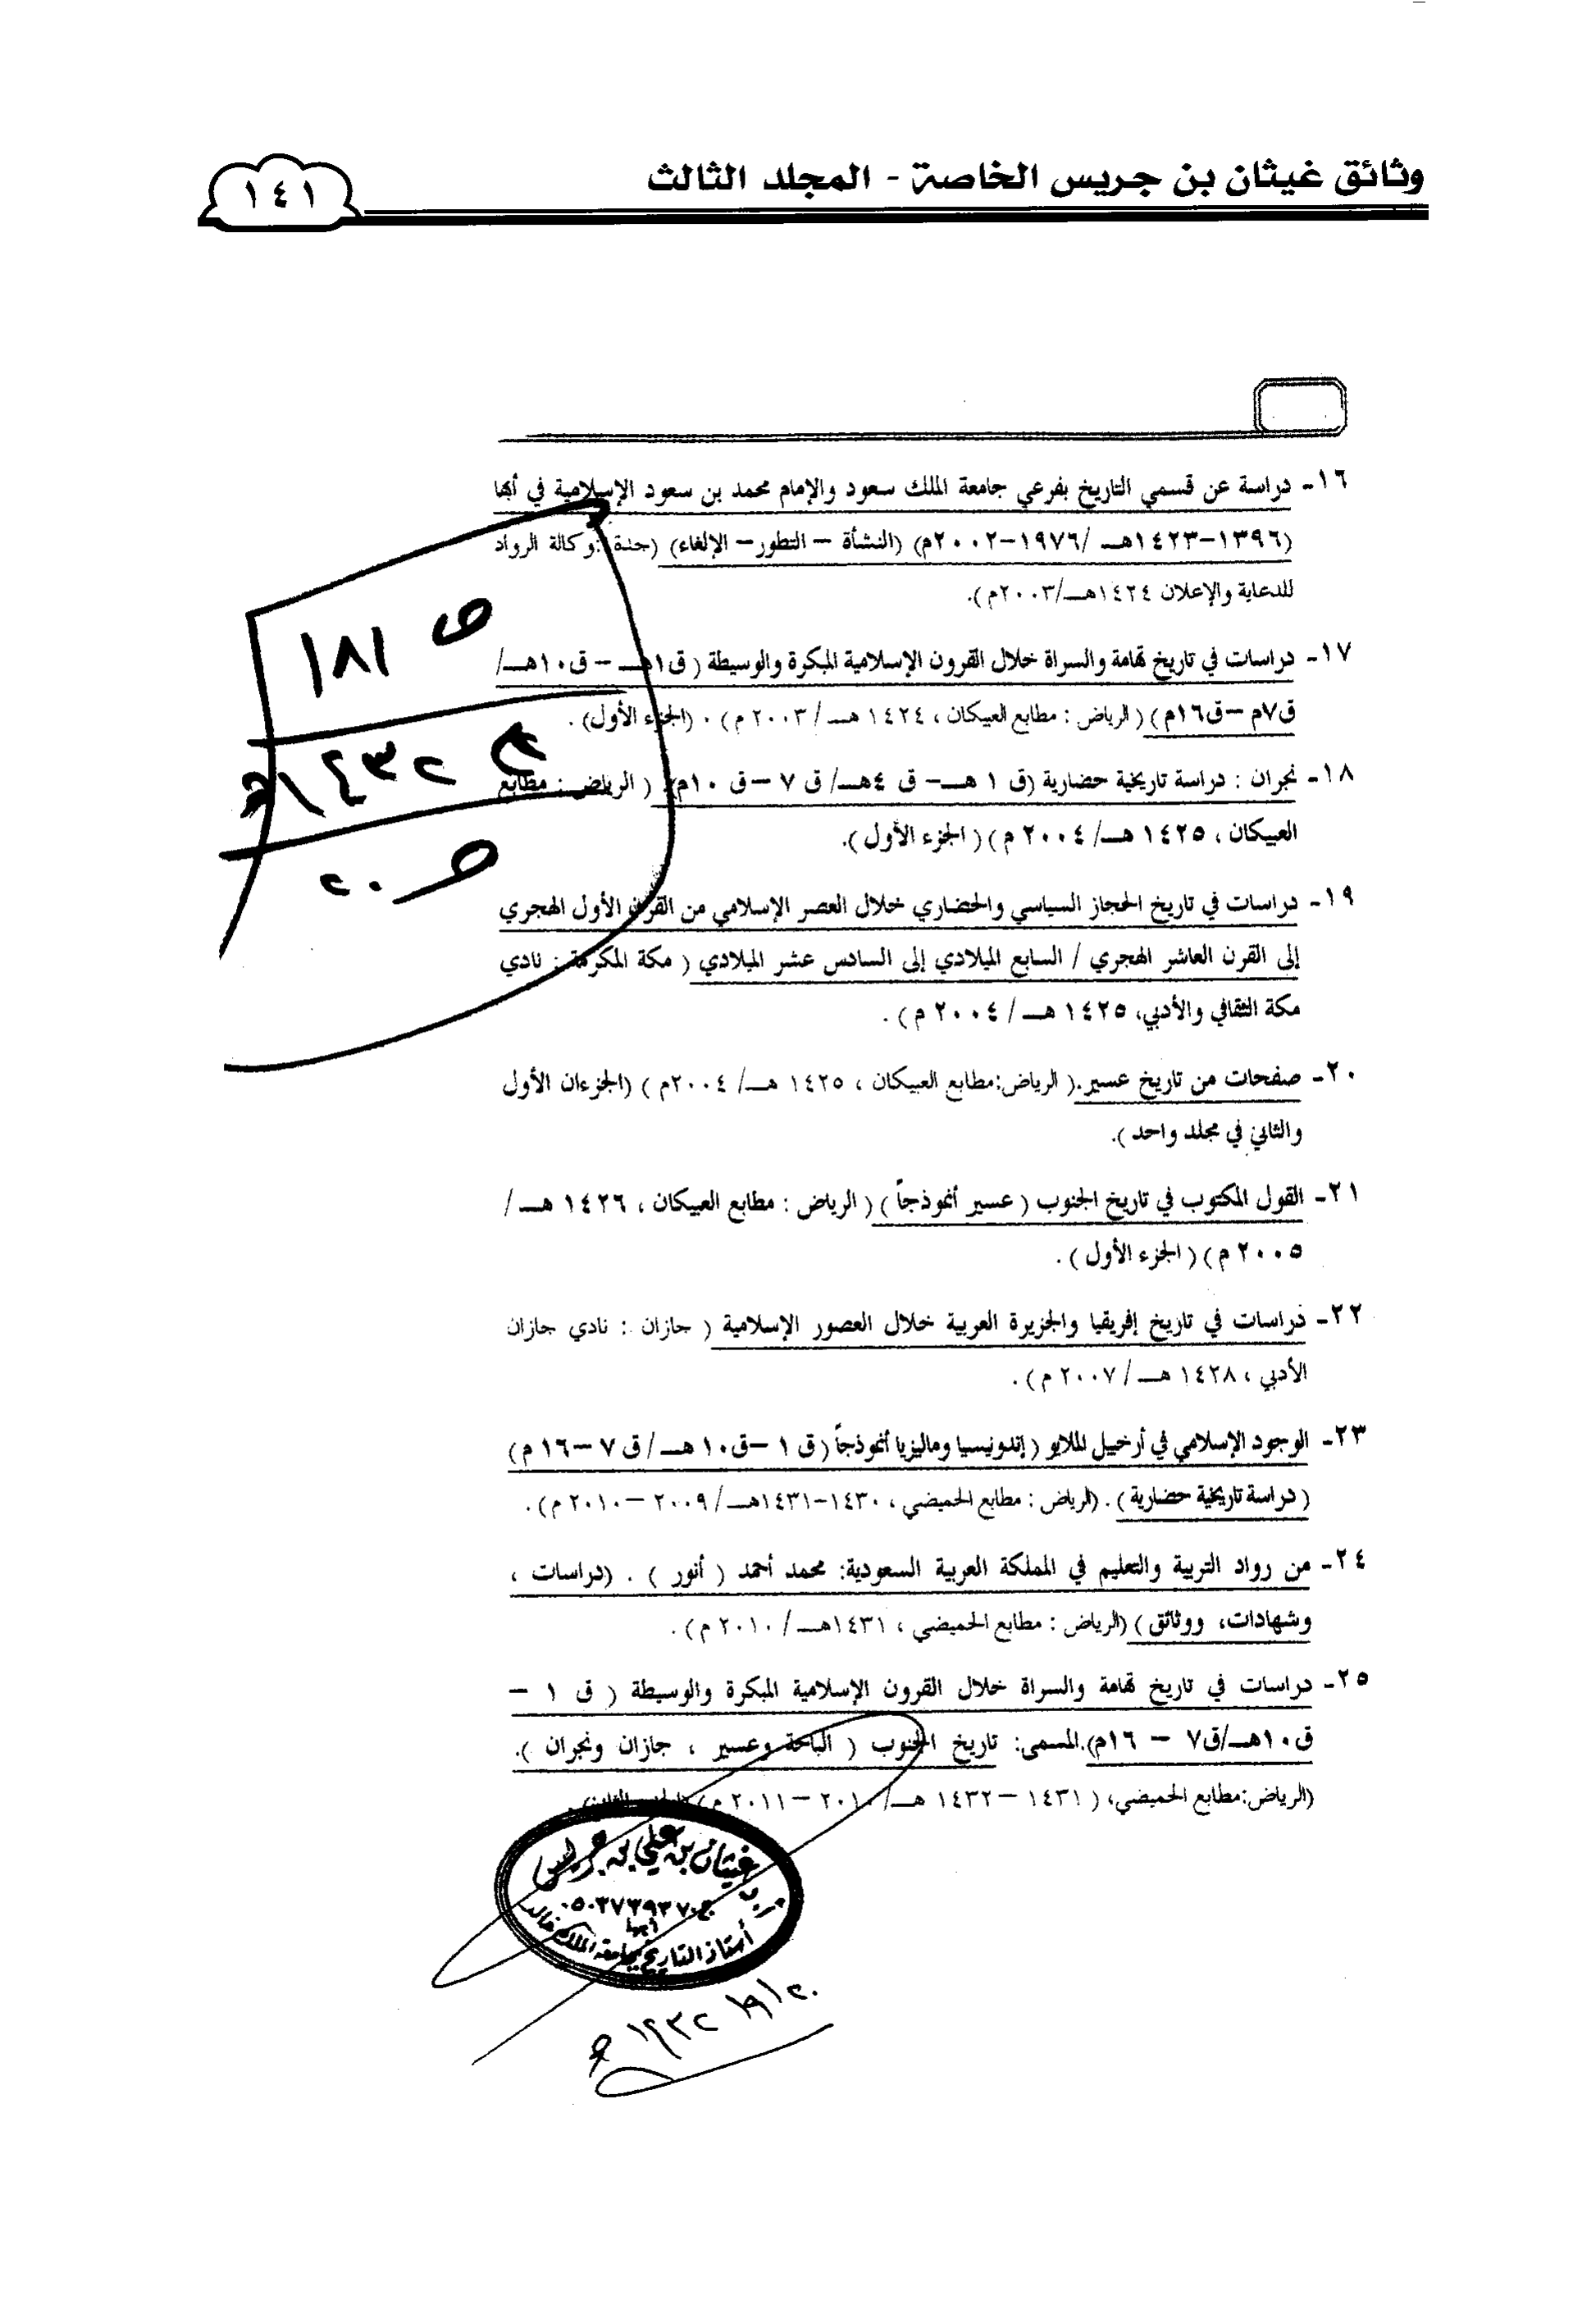 وثائق غيثان بن جريس الخاصة - المجلد الثالث
١٤١
١٦- دراسة عن قسمي التاريخ بفرعي جامعة الملك سعود والإمام محمد بن سعود الإسلامية في أبها
(١٣٩٦-١٤٢٣هـ /١٩٧٦-٢٠٠٢م) (النشأة - التطور- الإلغاء) (جدة :وكالة الرواد
للدعاية والإعلان ١٤٢٤هـ/٢٠٠٣م).
١٧- دراسات في تاريخ تهامة والسراة خلال القرون الإسلامية المبكرة والوسيطة ( ق١هـ - ق١٠هـ/
ق٧م -ق١٦م) ( الرياض : مطابع العبيكان ، ١٤٢٤ هـ / ٢٠٠٣ م ) . (الجزء الأول) .
١٨- نجران : دراسة تاريخية حضارية (ق ١ هـ- ق ٤هـ/ ق ٧ -ق ١٠م). ( الرياض : مطابع
العبيكان ، ١٤٢٥ هـ/ ٢٠٠٤ م ) ( الجزء الأول ).
١٩- دراسات في تاريخ الحجاز السياسي والحضاري خلال العصر الإسلامي من القرن الأول الهجري
إلى القرن العاشر الهجري / السابع الميلادي إلى السادس عشر الميلادي ( مكة المكرمة : نادي
مكة الثقافي والأدبي، ١٤٢٥ هـ / ٢٠٠٤ م ) .
٢٠- صفحات من تاريخ عسير.( الرياض:مطابع العبيكان ، ١٤٢٥ هـ/ ٢٠٠٤م ) (الجزءان الأول
والثاني في مجلد واحد ).
٢١- القول المكتوب في تاريخ الجنوب ( عسير أنموذجاً ) ( الرياض : مطابع العبيكان ، ١٤٢٦ هـ /
٢٠٠٥ م ) ( الجزء الأول ) .
٢٢- دراسات في تاريخ إفريقيا والجزيرة العربية خلال العصور الإسلامية ( جازان : نادي جازان
الأدبي ، ١٤٢٨ هـ / ٢٠٠٧ م ) .
٢٣- الوجود الإسلامي في أرخبيل الملايو ( إندونيسيا وماليزيا أنموذجاً ( ق ١ -ق١٠ هـ / ق ٧ -١٦ م )
( دراسة تاريخية حضارية ) . (الرياض : مطابع الحميضي ، ١٤٣٠-١٤٣١هـ/ ٢٠٠٩ - ٢٠١٠ م ) .
٢٤- من رواد التربية والتعليم في المملكة العربية السعودية: محمد أحمد ( أنور ) . (دراسات ،
وشهادات، ووثائق ) (الرياض : مطابع الحميضي ، ١٤٣١هـ / ٢٠١٠ م ) .
٢٥- دراسات في تاريخ تهامة والسراة خلال القرون الإسلامية المبكرة والوسيطة ( ق ١ -
ق١٠هـ/ق٧ - ١٦م).المسمى: تاريخ الجنوب ( الباحة وعسير ، جازان ونجران ).
(الرياض:مطابع الحميضي، ( ١٤٣١ - ١٤٣٢ هـ/ ٢٠١٠ - ٢٠١١ م)
ص ١٨١
م ١٤٣٢/
ص ٢٠
غيثان بن علي بن جريس
أبها
أستاذ التاريخ بجامعة الملك خالد